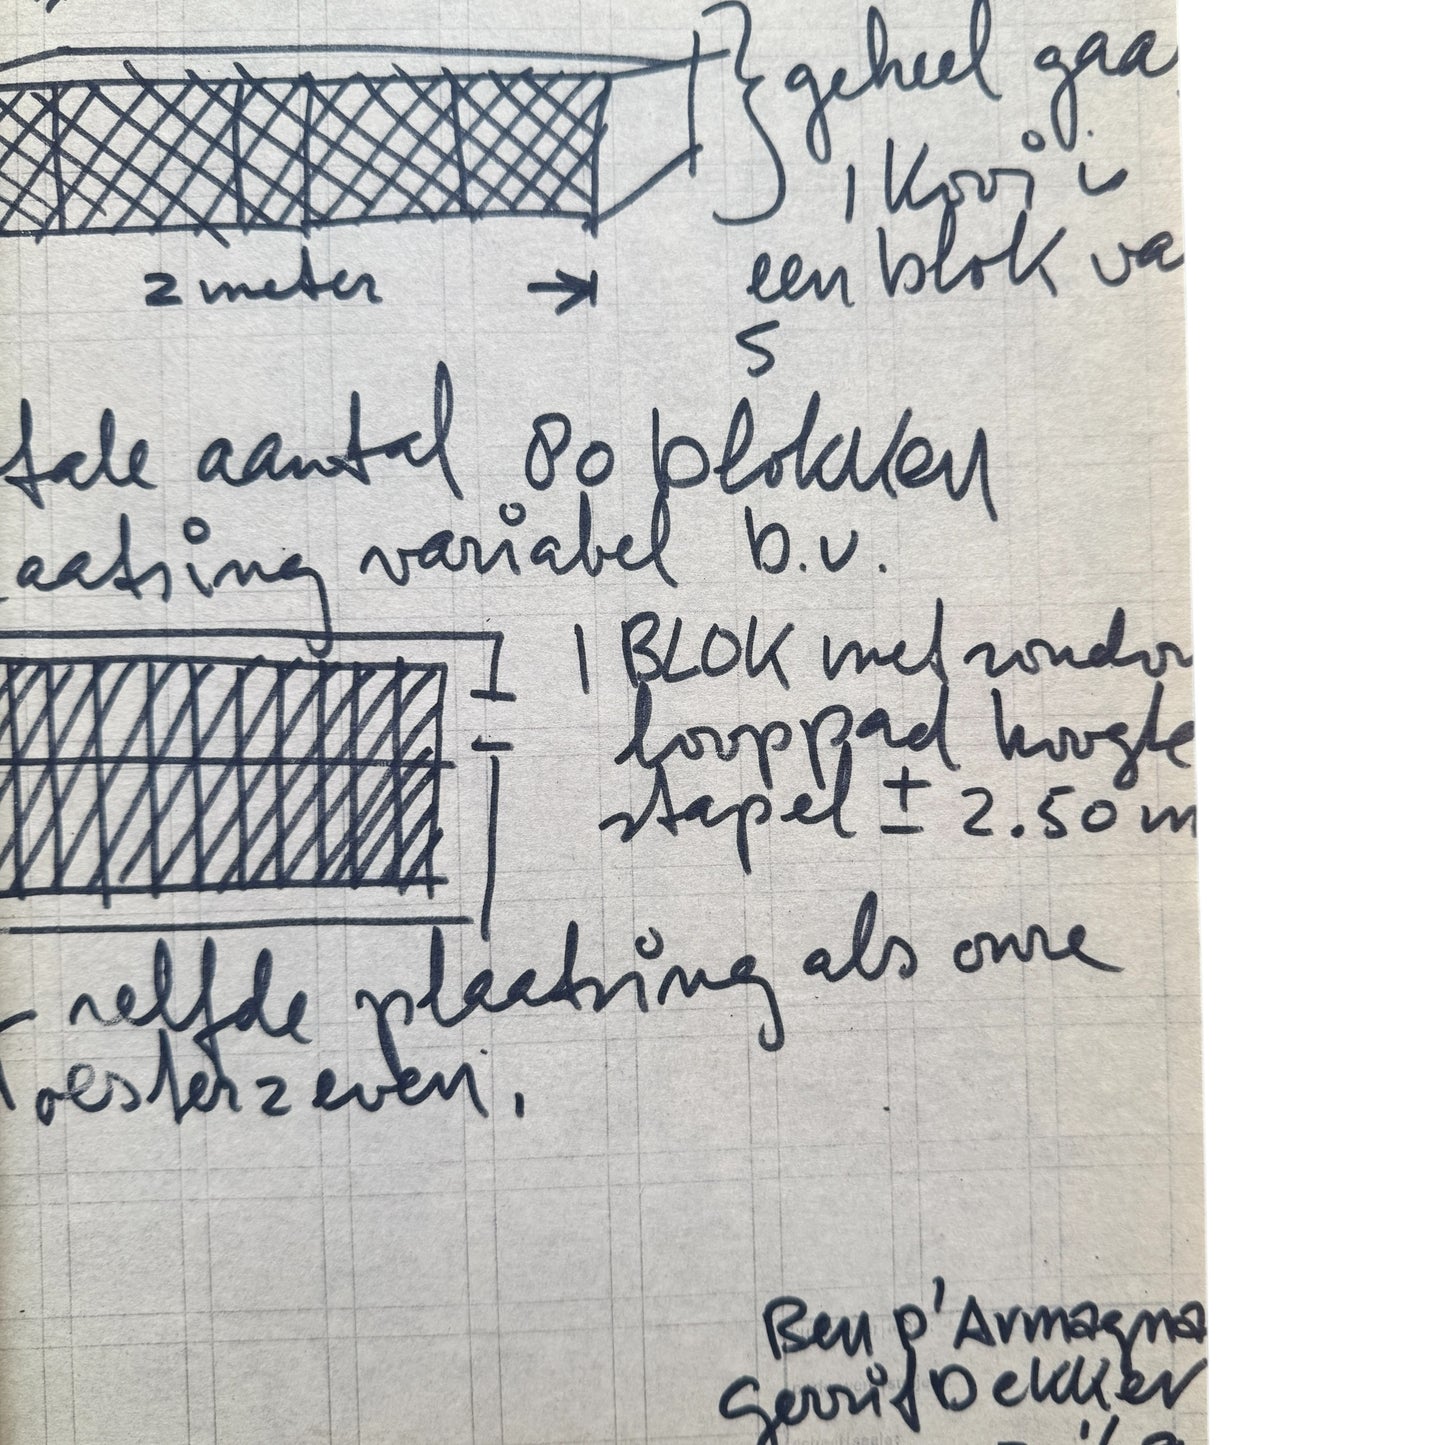 geheel gaa
1 Kooi i
een blok va
5
2 meter
tale aantal 80 blokken
aatsing variabel b.v.
1 BLOK met rondo
looppad hoogte
stapel ± 2.50 m
zelfde plaatsing als onze
oesterzeven.
Ben d'Armagna
Gerrit Dekker